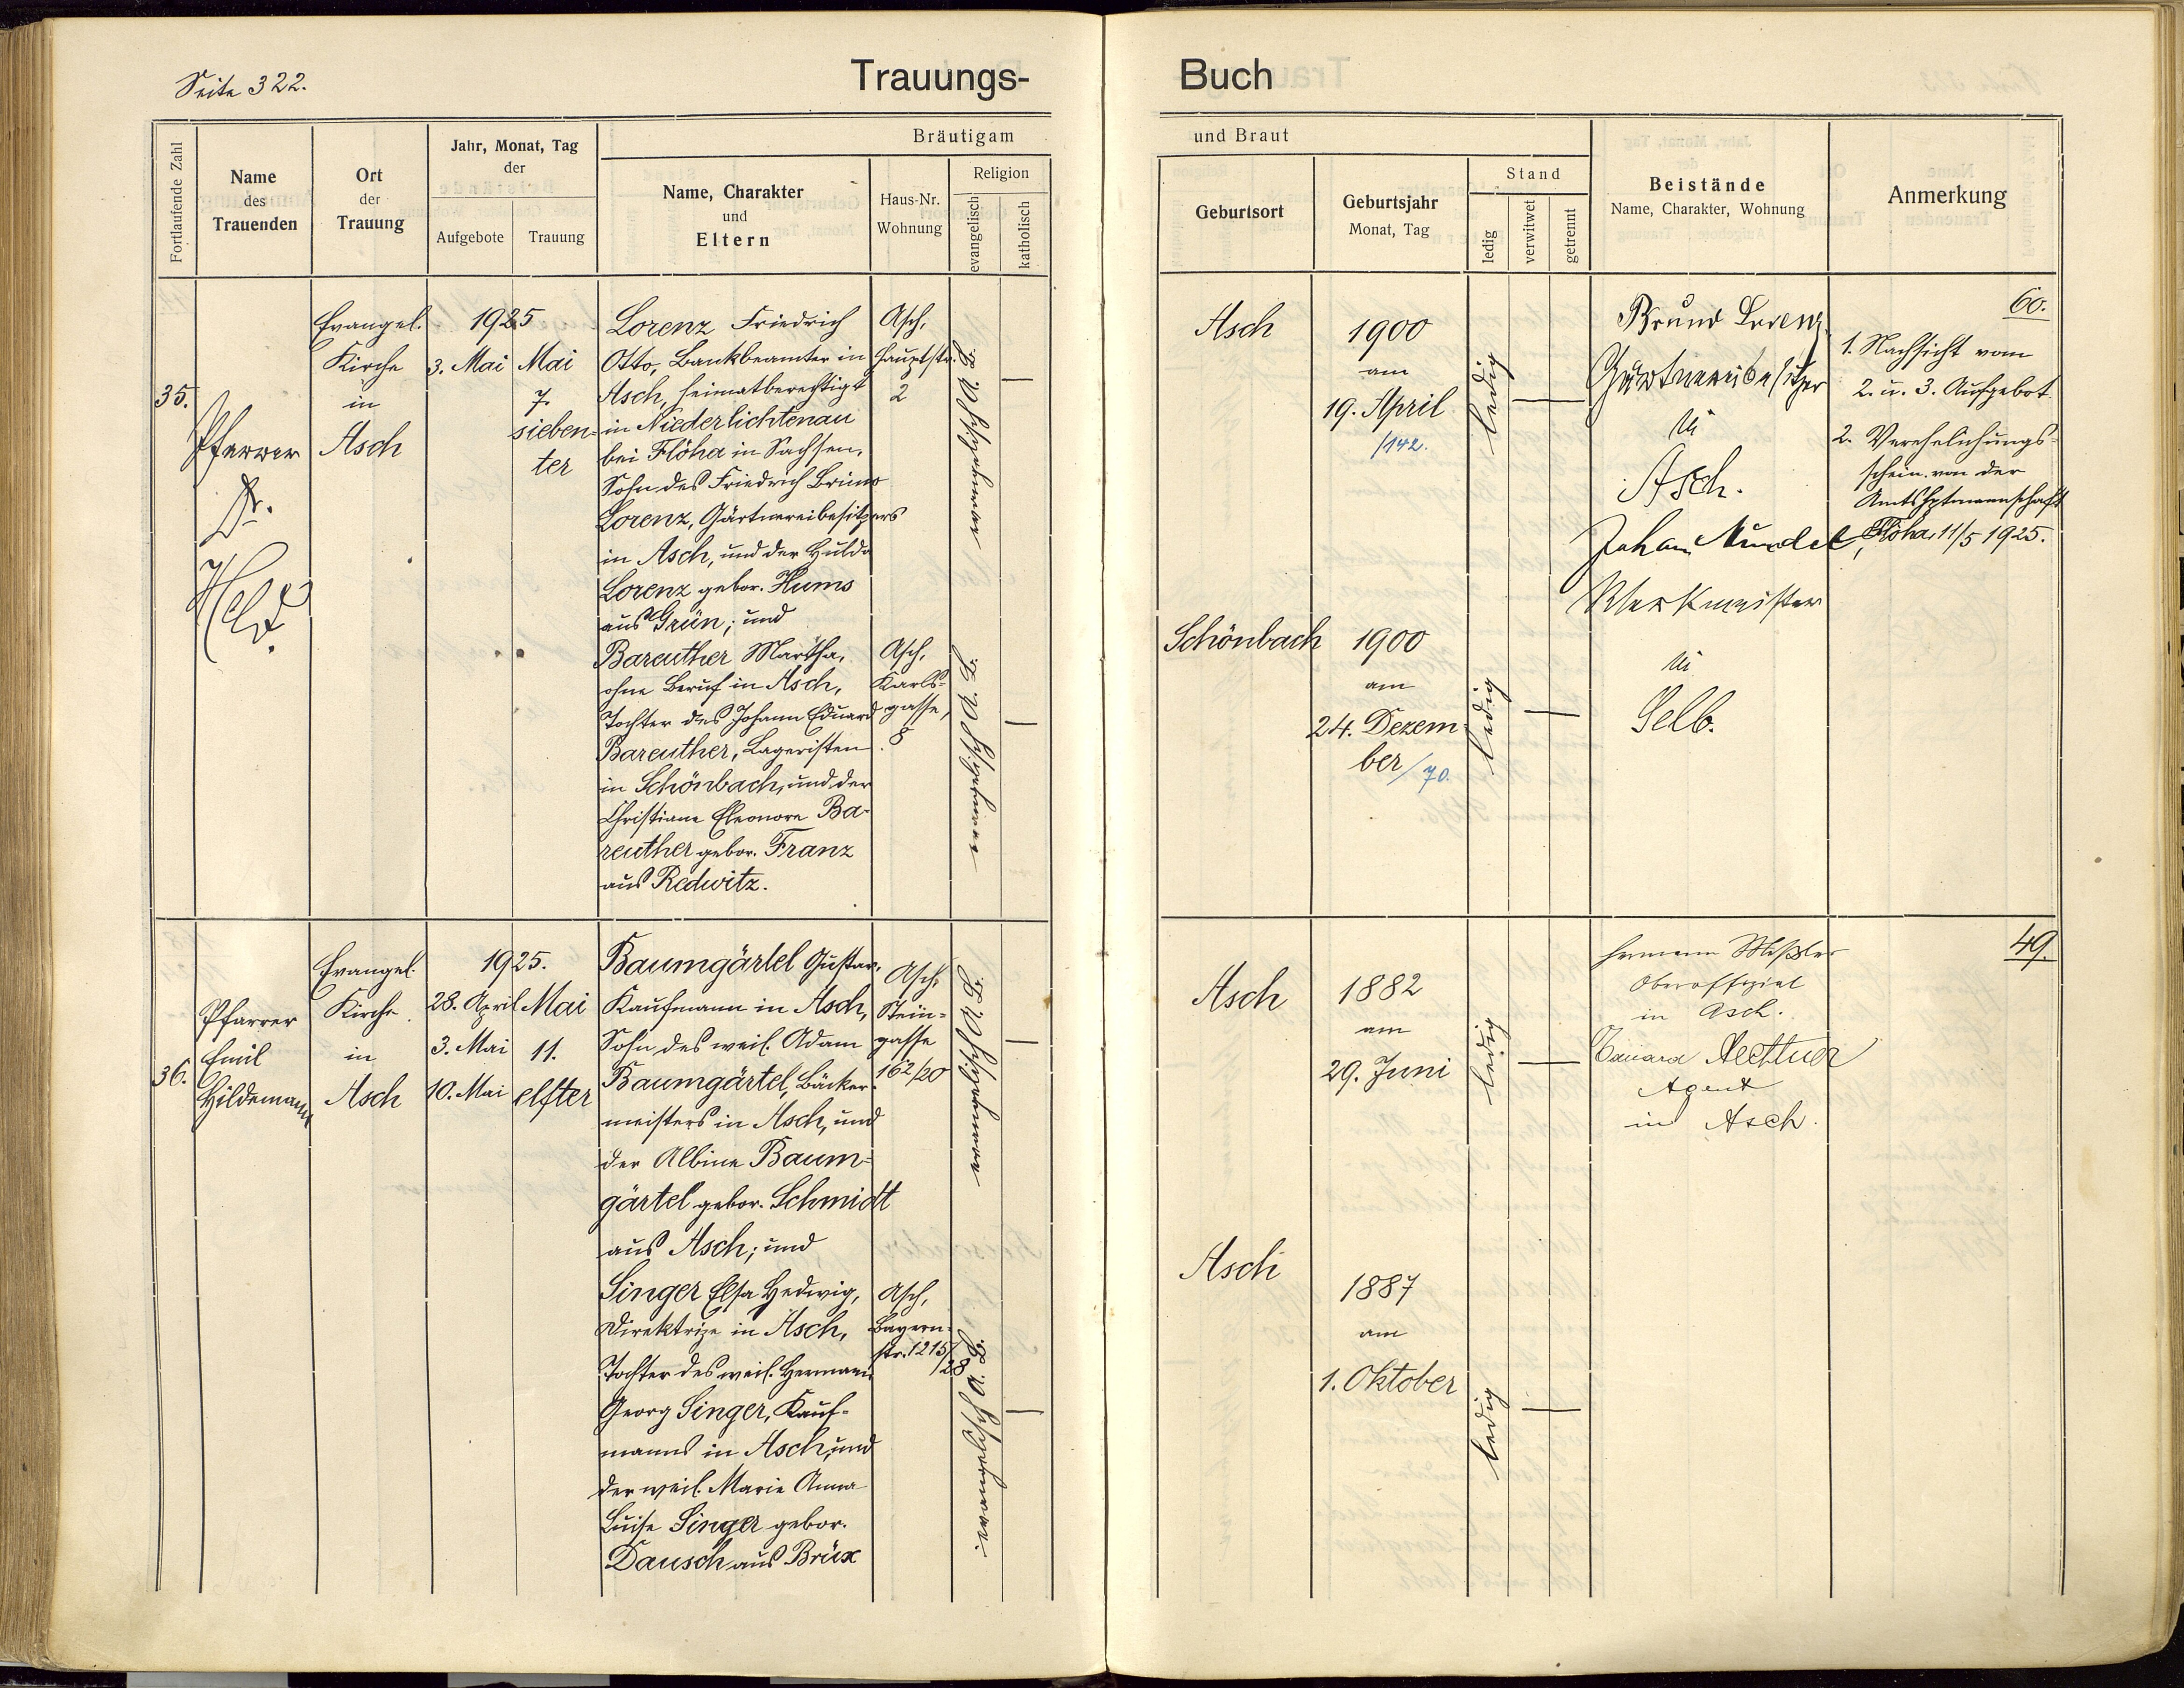 Seite 322.
Trauungs-
Buch
Fortlaufende Zahl
Name
des
Trauenden
Ort
der
Trauung
Jahr, Monat, Tag
der
Aufgebote
Trauung
Bräutigam
Name, Charakter
und
Eltern
Haus-Nr.
Wohnung
Religion
evangelisch
katholisch
und Braut
Geburtsort
Geburtsjahr
Monat, Tag
Stand
ledig
verwitwet
getrennt
Beistände
Name, Charakter, Wohnung
Anmerkung
35.
Pfarrer
Dr.
Held
Evangel.
Kirche
in
Asch
1925
3. Mai
Mai
7.
sieben-
ter
Lorenz Friedrich
Otto, Bankbeamter in
Asch, heimatberechtigt
in Niederlichtenau
bei Flöha in Sachsen,
Sohn des Friedrich Bruno
Lorenz, Gärtnereibesitzers
in Asch, und der Hulda
Lorenz gebor. Hums
aus Grün; und
Bareuther Martha,
ohne Beruf in Asch,
Tochter des Johann Eduard
Bareuther, Lageristen
in Schönbach, und der
Christiane Eleonore Ba-
reuther gebor. Franz
aus Redwitz.
Asch,
Hauptstr.
2
Asch,
Karls-
gasse,
8
evangelisch A. B.
evangelisch A. B.
Asch
1900
am
19. April
/142.
ledig
Schönbach
1900
am
24. Dezem-
ber/70.
ledig
Bruno Lorenz
Gärtnereibesitzer
in
Asch.
Johann
Werkmeister
in
Selb.
60.
1. Nachsicht vom
2. u. 3. Aufgebot
2. Verehelichungs-
schein von der
Amtshptmannschaft
Flöha, 11/5 1925.
36.
Pfarrer
Emil
Hildemann
Evangel.
Kirche
in
Asch
1925.
28. April
3. Mai
10. Mai
Mai
11.
elfter
Baumgärtel Gustav,
Kaufmann in Asch,
Sohn des weil. Adam
Baumgärtel, Bäcker-
meisters in Asch, und
der Albine Baum-
gärtel gebor. Schmidt
aus Asch; und
Singer Elsa Hedwig,
Direktrize in Asch,
Tochter des weil. Hermann
Georg Singer, Kauf-
manns in Asch, und
der weil. Marie Anna
Luise Singer gebor.
Dausch aus Brüx
Asch,
Stein-
gasse
162/20
Asch,
Bayern-
str. 1215/
/28
evangelisch A. B.
evangelisch A. B.
Asch
1882
am
29. Juni
ledig
Asch
1887
am
1. Oktober
ledig
Oberoffizial
in Asch.
Eduard
Agent
in Asch.
49.